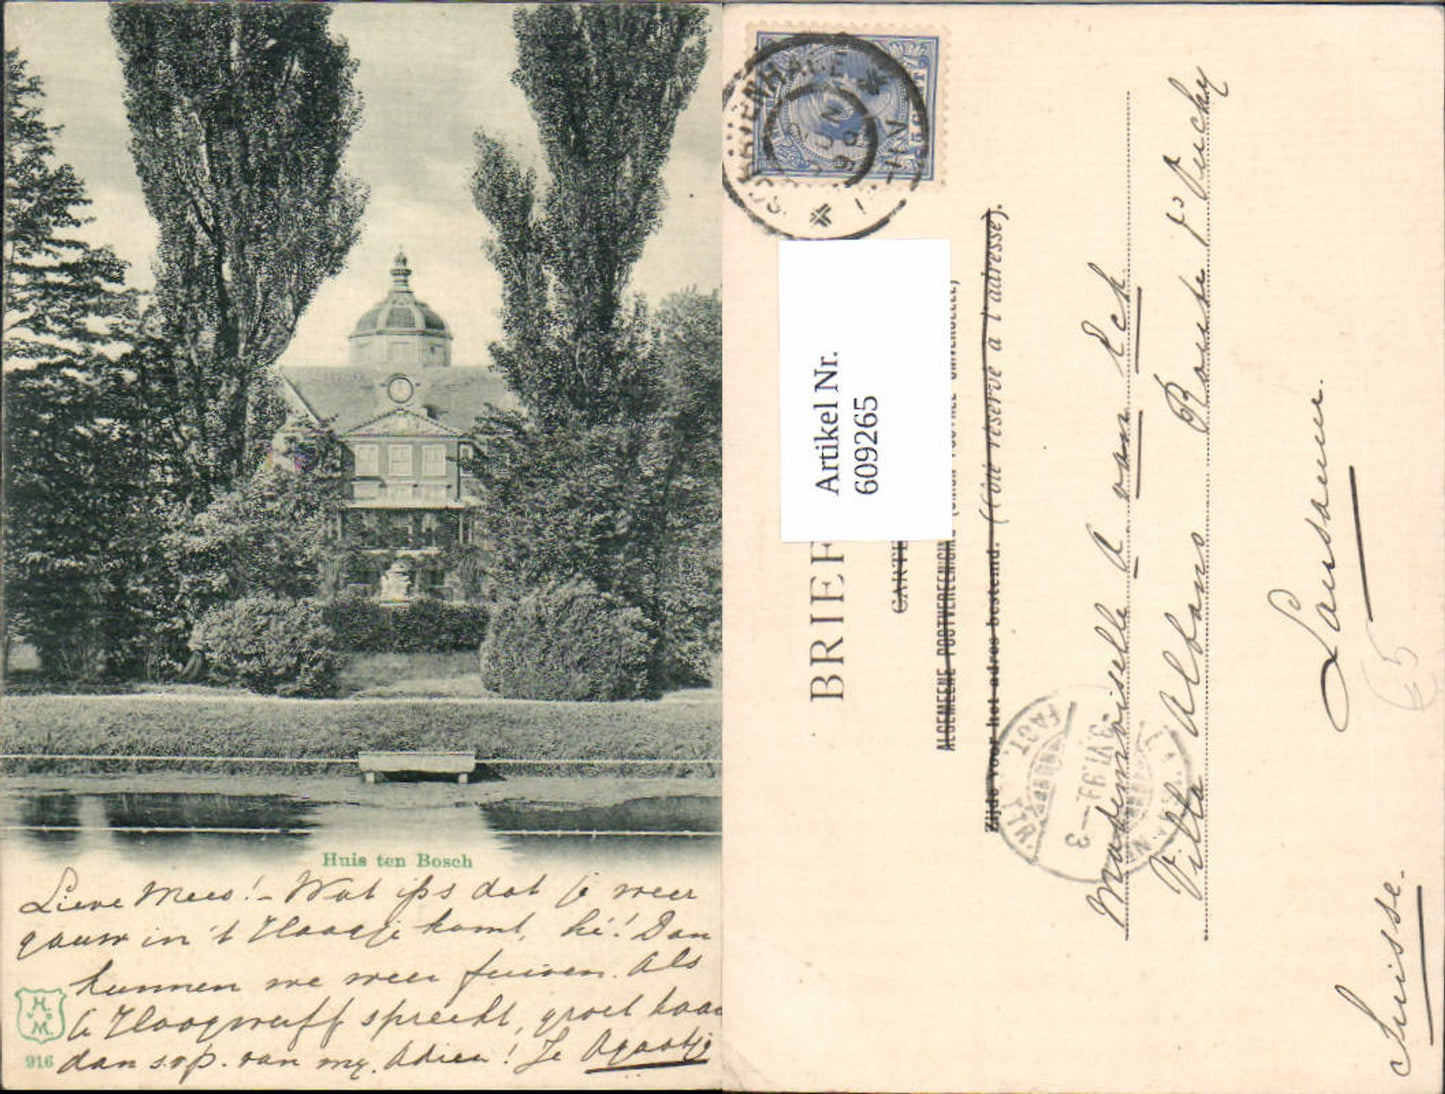 Huis ten Bosch
Lieve Mees! - Wat is dat je weer
gauw in 't Haagje komt, hè! Dan
kunnen we weer fuiven. Als
Hoogwerff spreekt, groet haar
dan s.v.p. van mij. Adieu! Je Agaatje
H.
M.
916
'SGRAVENHAGE
JUN
99
7½ CTS
Artikel Nr.
609265
BRIEF
CARTE
ALGEMEENE POSTVEREENIGING (UNION POSTALE UNIVERSELLE)
Zijde voor het adres bestemd. (Côté réservé à l'adresse).
Mademoiselle A van Eck
Villa Albano Route d'Ouchy
Lausanne.
Suisse.
-3.VI.99.
FACT.
65